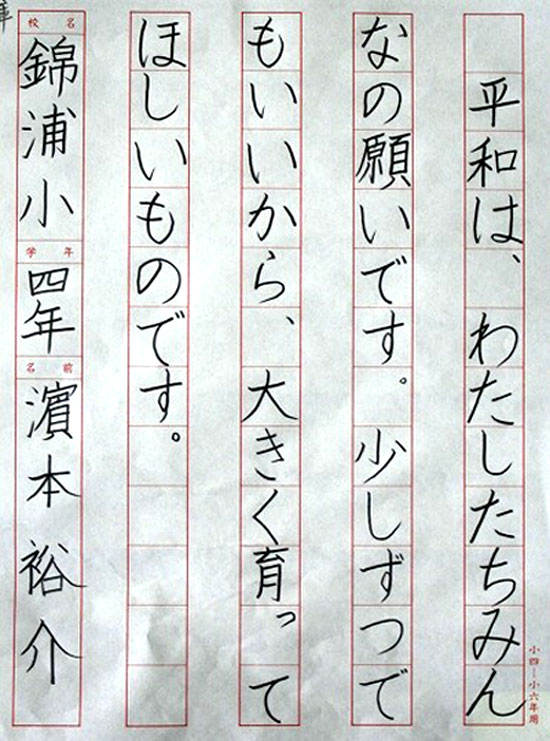 平和は、わたしたちみん
なの願いです。少しずつで
もいいから、大きく育って
ほしいものです。
校名
錦浦小
学年
四年
名前
濵本裕介
小四―小六年用